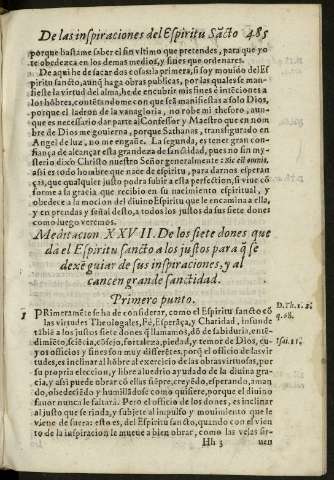 De las inspiraciones del Espiritu Sãcto 485
porque bastame saber el fin vltimo que pretendes, para que yo
te obedezca en los demas medios, y fines que ordenares.
De aqui he de sacar dos cosas: la primera, si soy mouido del Es
piritu sancto, aunq̃ haga obras publicas, por las quales se mani-
fieste la virtud del alma, he de encubrir mis fines è intẽciones a
los hõbres, contẽtandome con que seã manifiestas a solo Dios,
porque el ladron de la vanagloria, no robe mi thesoro, aun-
que es necessario dar parte al Confessor y Maestro que en nom
bre de Dios me gouierna, porque Sathanas, transfigurado en
Angel de luz, no me engañe. La segunda, es tener gran con-
fiança de alcançar esta grandeza de sanctidad, pues no sin my-
sterio dixo Christo nuestro Señor generalmente: Sic est omnis,
assi es todo hombre que nace de espiritu, para darnos esperan
ças, que qualquier justo podra subir a esta perfection, si viue cõ
forme a la gracia que recibio en su nacimiento espiritual, y
obedece a la mocion del diuino Espiritu que le encamina a ella,
y en prendas y señal desto, a todos los justos da sus siete dones
como luego veremos.
Meditacion XXVII. De los siete dones que
dà el Espiritu sancto a los justos para q̃ se
dexẽ guiar de sus inspiraciones, y al
cancen grande sanctidad.
Primero punto.
1 PRimeramẽte se ha de considerar, como el Espiritu sancto cõ
D. Th. 1. 2.
las virtudes Theologales, Fè, Esperãça, y Charidad, infunde
q. 68.
tãbiẽ a los justos siete dones q̃ llamamos, dõ de sabiduria, ente-
dimiẽto, sciẽcia, cõsejo, fortaleza, piedad, y temor de Dios, cu-
Isai. 11.
yos officios y fines son muy differẽtes, porq̃ el officio de las vir
tudes, es inclinar al hõbre al exercicio de las obras virtuosas, por
su propria eleccion, y libre aluedrio ayudado de la diuina gra-
cia, y assi puede obrar cõ ellas siẽpre, creyẽdo, esperando, aman
do, obedeciẽdo y humillãdose como quisiere, porque el diuino
fauor nunca le faltarà. Pero el officio de los dones, es inclinar
al justo que se rinda, y subjete al impulso y mouimiento que le
viene de fuera: esto es, del Espiritu sancto, quando con el vien
to de la inspiracion le mueue a bien obrar, como las velas sir-
Hh 3 uen